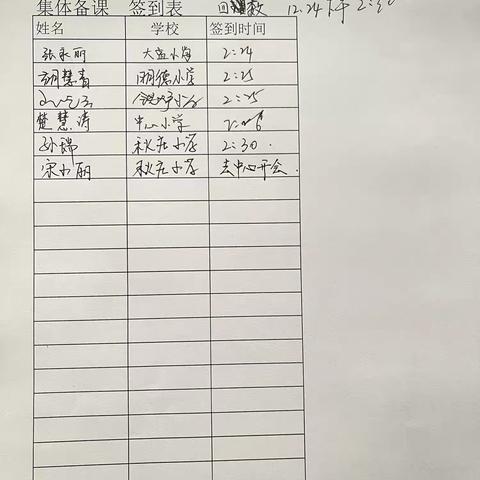 集体备课 签到表 数 12.24 下午 2:30
姓名 学校 签到时间
张永丽 大孟小学 2:24
胡慧青 明德小学 2:25
2:25
楚慧涛 中心小学
孙瑞 秋庄小学 2:30.
宋小丽 秋庄小学 去中心开会.